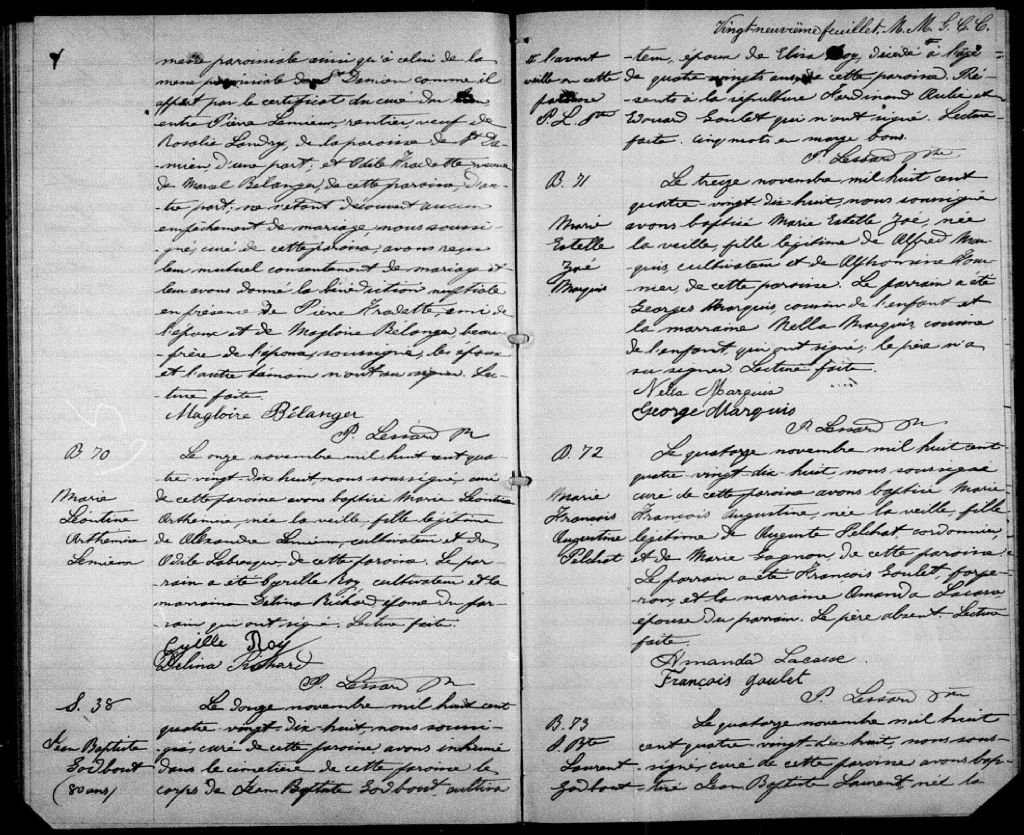 messe paroissiale ainsi qu'à celui de la
messe paroissiale de St Damien comme il
appert par le certificat du curé du lieu
entre Pierre Lemieux, rentier, veuf de
Rosalie Landry, de la paroisse de St Da-
mien, d'une part; et Odile Fradette veuve
de Marcel Bélanger, de cette paroisse, d'au-
tre part; ne s'étant découvert aucun
empêchement de mariage, nous soussi-
gné, curé de cette paroisse, avons reçu
leur mutuel consentement de mariage et
leur avons donné la bénédiction nuptiale
en présence de Pierre Fradette, ami de
l'époux et de Magloire Bélanger, beau-
frère de l'épouse, soussigné; les époux
et l'autre témoin n'ont su signer. Lec-
ture faite.
Magloire Bélanger
P. Lessard Ptre
B 70
Marie
Léontine
Arthémise
Lemieux
Le onze novembre mil huit cent qua
tre vingt dix huit, nous soussigné, curé
de cette paroisse avons baptisé Marie Léontine
Arthémise, née la veille, fille légitime
de Alexandre Lemieux, cultivateur et de
Odile Labrecque de cette paroisse. Le par-
rain a été Cyrille Roy cultivateur et la
marraine Délina Richard épouse du par-
rain qui ont signé. Lecture faite.
Cyrille Roy
Délina Richard
P. Lessard Ptre
S. 38
Jean Baptiste
Godbout
(80 ans)
Le douze novembre mil huit cent
quatre-vingt-dix-huit, nous soussi-
gné, curé de cette paroisse, avons inhumé
dans le cimetière de cette paroisse le
corps de Jean Baptiste Godbout, cultiva
Vingt neuvième feuillet. M. M. G. C. C.
# l'avant
veille en cette
paroisse
P. L. Ptre
teur, époux de Eliza Roy, décédé # à l'âge
de quatre vingts ans, de cette paroisse. Pré-
sents à la sépulture Ferdinand et
Edouard Goulet qui n'ont signé. Lecture
faite. Cinq mots en marge bons.
P. Lessard Ptre
B. 71
Marie
Estelle
Zoé
Marquis
Le treize novembre mil huit cent
quatre-vingt dix-huit, nous soussigné
avons baptisé Marie Estelle Zoé, née
la veille, fille légitime de Alfred Mar-
quis, cultivateur et de Alphonsine Four-
nier, de cette paroisse. Le parrain a été
Georges Marquis, cousin de l'enfant et
la marraine Nella Marquis, cousine
de l'enfant, qui ont signé; le père n'a
su signer. Lecture faite.
Nella Marquis
George Marquis
P. Lessard Ptre
B. 72
Marie
François
Augustine
Pelchat
Le quatorze novembre mil huit cent
quatre vingt dix huit, nous soussigné
curé de cette paroisse avons baptisé Marie
François Augustine, née la veille, fille
légitime de Auguste Pelchat, cordonnier,
et de Marie Gagnon, de cette paroisse.
Le parrain a été François Goulet, forge-
ron, et la marraine Amanda Lacasse
épouse du parrain. Le père absent. Lecture
faite.
Amanda Lacasse
François Goulet
P. Lessard Ptre
B. 73
J. Bte
Laurent
Godbout
Le quatorze novembre mil huit
cent quatre-vingt-dix-huit, nous sous-
signé, curé de cette paroisse avons bap-
tisé Jean Baptiste Laurent, né la